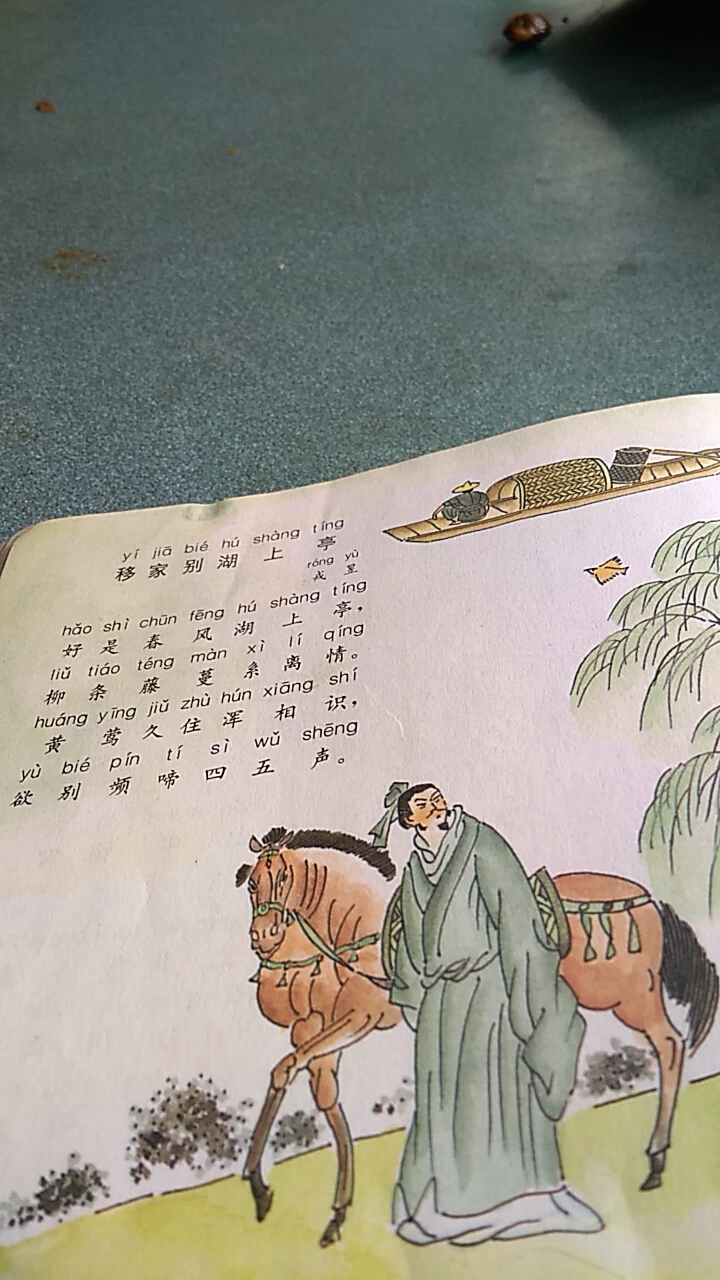 yí jiā bié hú shàng tíng
移家别湖上亭
róng yù
戎昱
hǎo shì chūn fēng hú shàng tíng
好是春风湖上亭，
liǔ tiáo téng màn xì lí qíng
柳条藤蔓系离情。
huáng yīng jiǔ zhù hún xiāng shí
黄莺久住浑相识，
yù bié pín tí sì wǔ shēng
欲别频啼四五声。